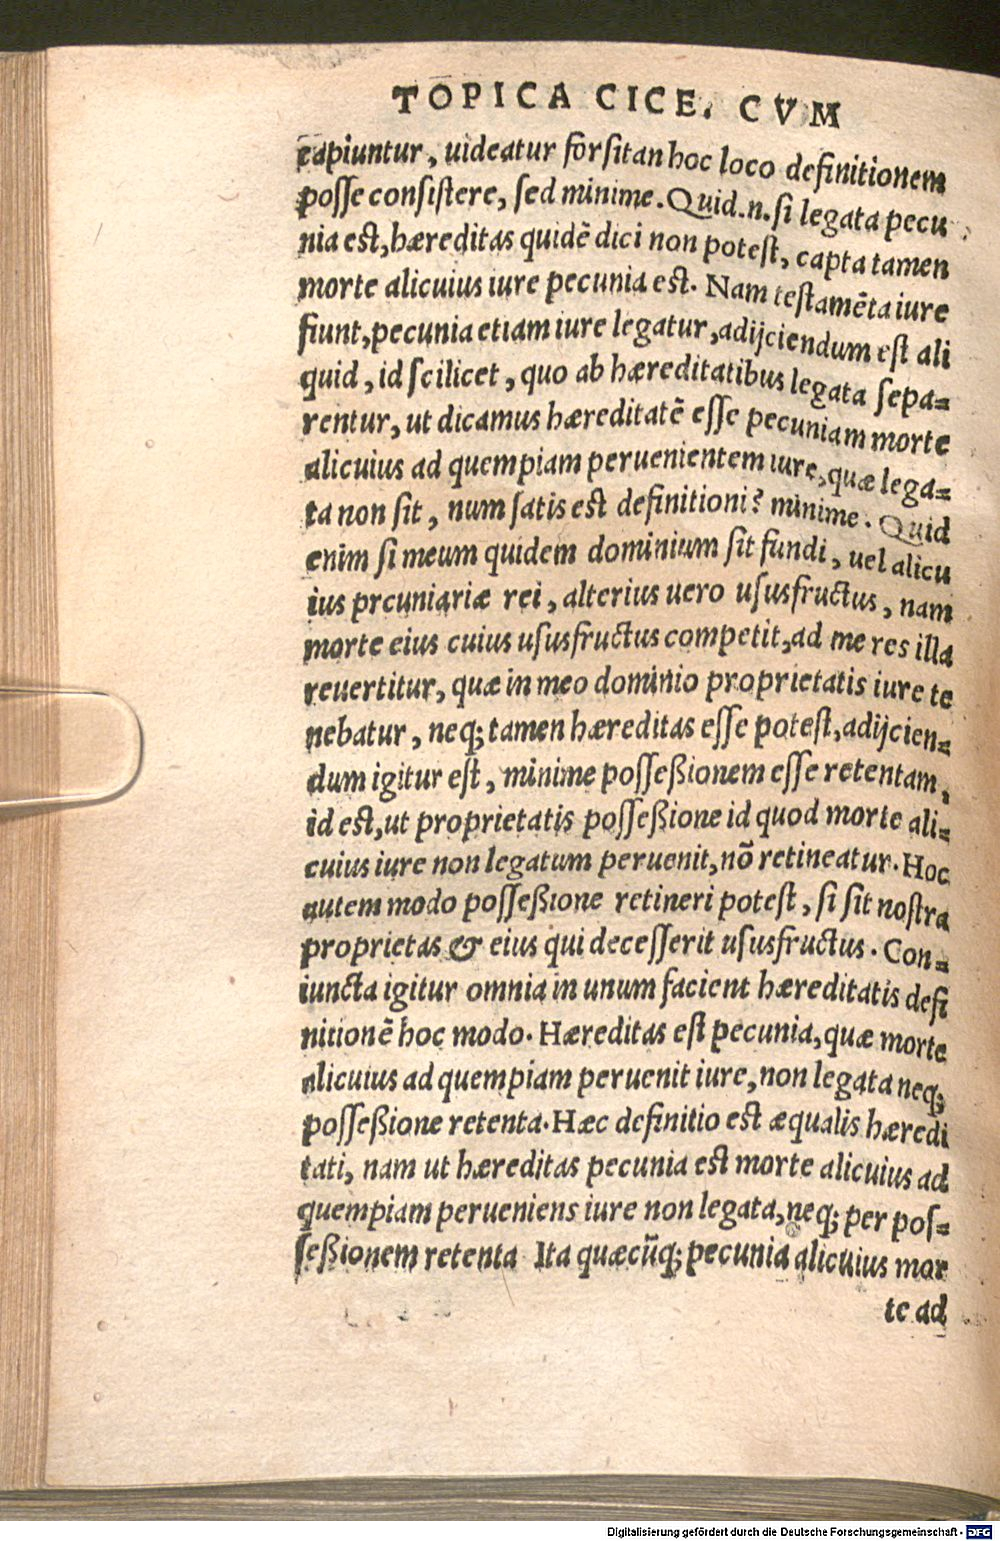 TOPICA CICE. CVM
capiuntur, uideatur forsitan hoc loco definitionem
posse consistere, sed minime. Quid.n. si legata pecu
nia est, hæreditas quidẽ dici non potest, capta tamen
morte alicuius iure pecunia est. Nam testamẽta iure
fiunt, pecunia etiam iure legatur, adijciendum est ali
quid, id scilicet, quo ab hæreditatibus legata sepa=
rentur, ut dicamus hæreditatẽ esse pecuniam morte
alicuius ad quempiam peruenientem iure, quæ lega=
ta non sit, num satis est definitioni? minime. Quid
enim si meum quidem dominium sit fundi, uel alicu
ius prcuniariæ rei, alterius uero ususfructus, nam
morte eius cuius ususfructus competit, ad me res illa
reuertitur, quæ in meo dominio proprietatis iure te
nebatur, neq; tamen hæreditas esse potest, adijcien=
dum igitur est, minime posseßionem esse retentam,
id est, ut proprietatis posseßione id quod morte ali=
cuius iure non legatum peruenit, nõ retineatur. Hoc
autem modo posseßione retineri potest, si sit nostra
proprietas & eius qui decesserit ususfructus. Con=
iuncta igitur omnia in unum facient hæreditatis defi
nitionẽ hoc modo. Hæreditas est pecunia, quæ morte
alicuius ad quempiam peruenit iure, non legata neq;
posseßione retenta. Hæc definitio est æqualis hæredi
tati, nam ut hæreditas pecunia est morte alicuius ad
quempiam perueniens iure non legata, neq; per pos=
seßionem retenta Ita quæcũq; pecunia alicuius mor
te ad
Digitalisierung gefördert durch die Deutsche Forschungsgemeinschaft - DFG